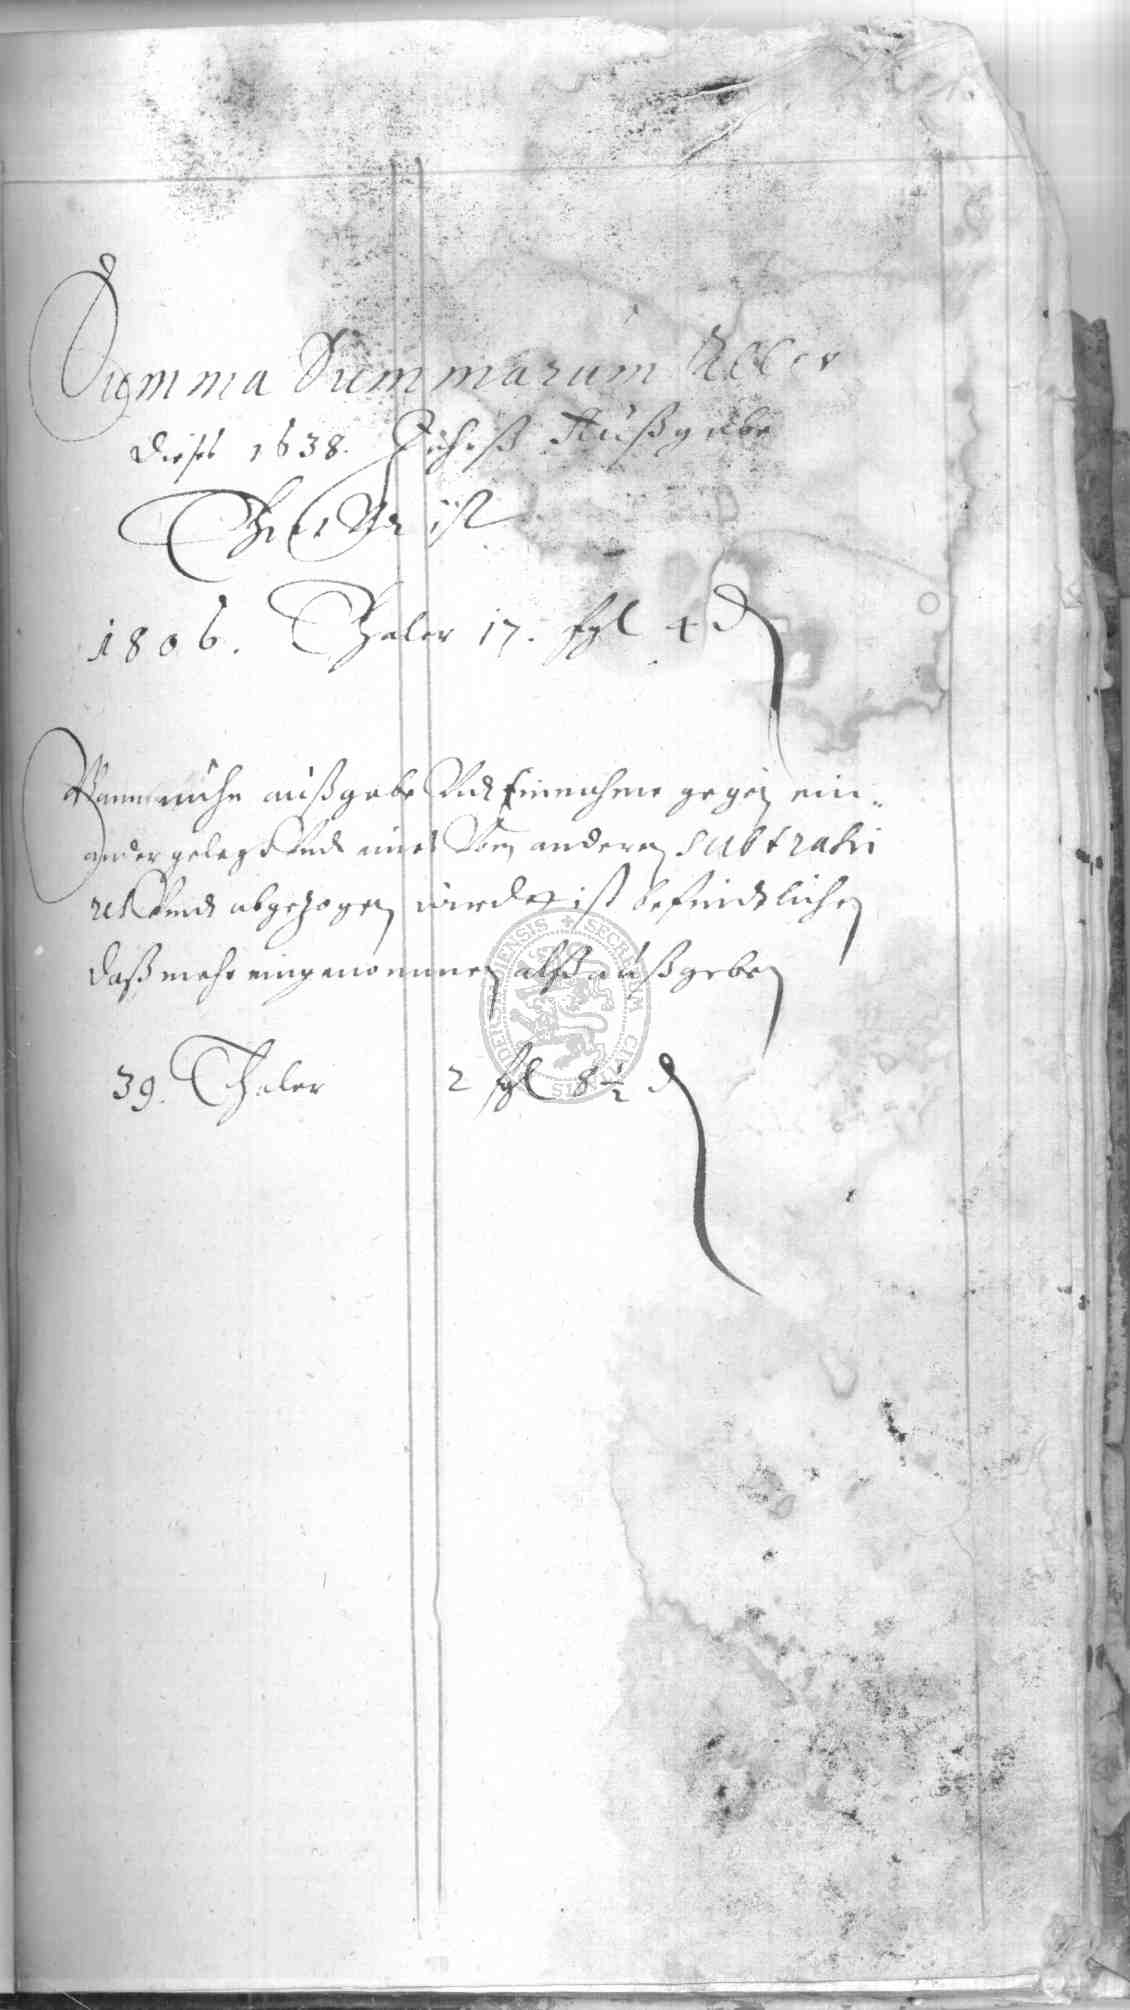 Summa Summarum Aller
Dieses 1638. Jahrß Außgabe
Thutt ist
1806. Thaler 17. fgl 4 ₰
Wann nuhn außgabe Vnd Einnahme gegen ein-
ander gelegt Vnd eines Von anderen subtrahi
ret Vnd abgezogen wirdt ist befindtlichen
daß mehr eingenommen alß außgeben
39. Thaler 2 fgl 8½ ₰
SECRETUM CIVITATIS